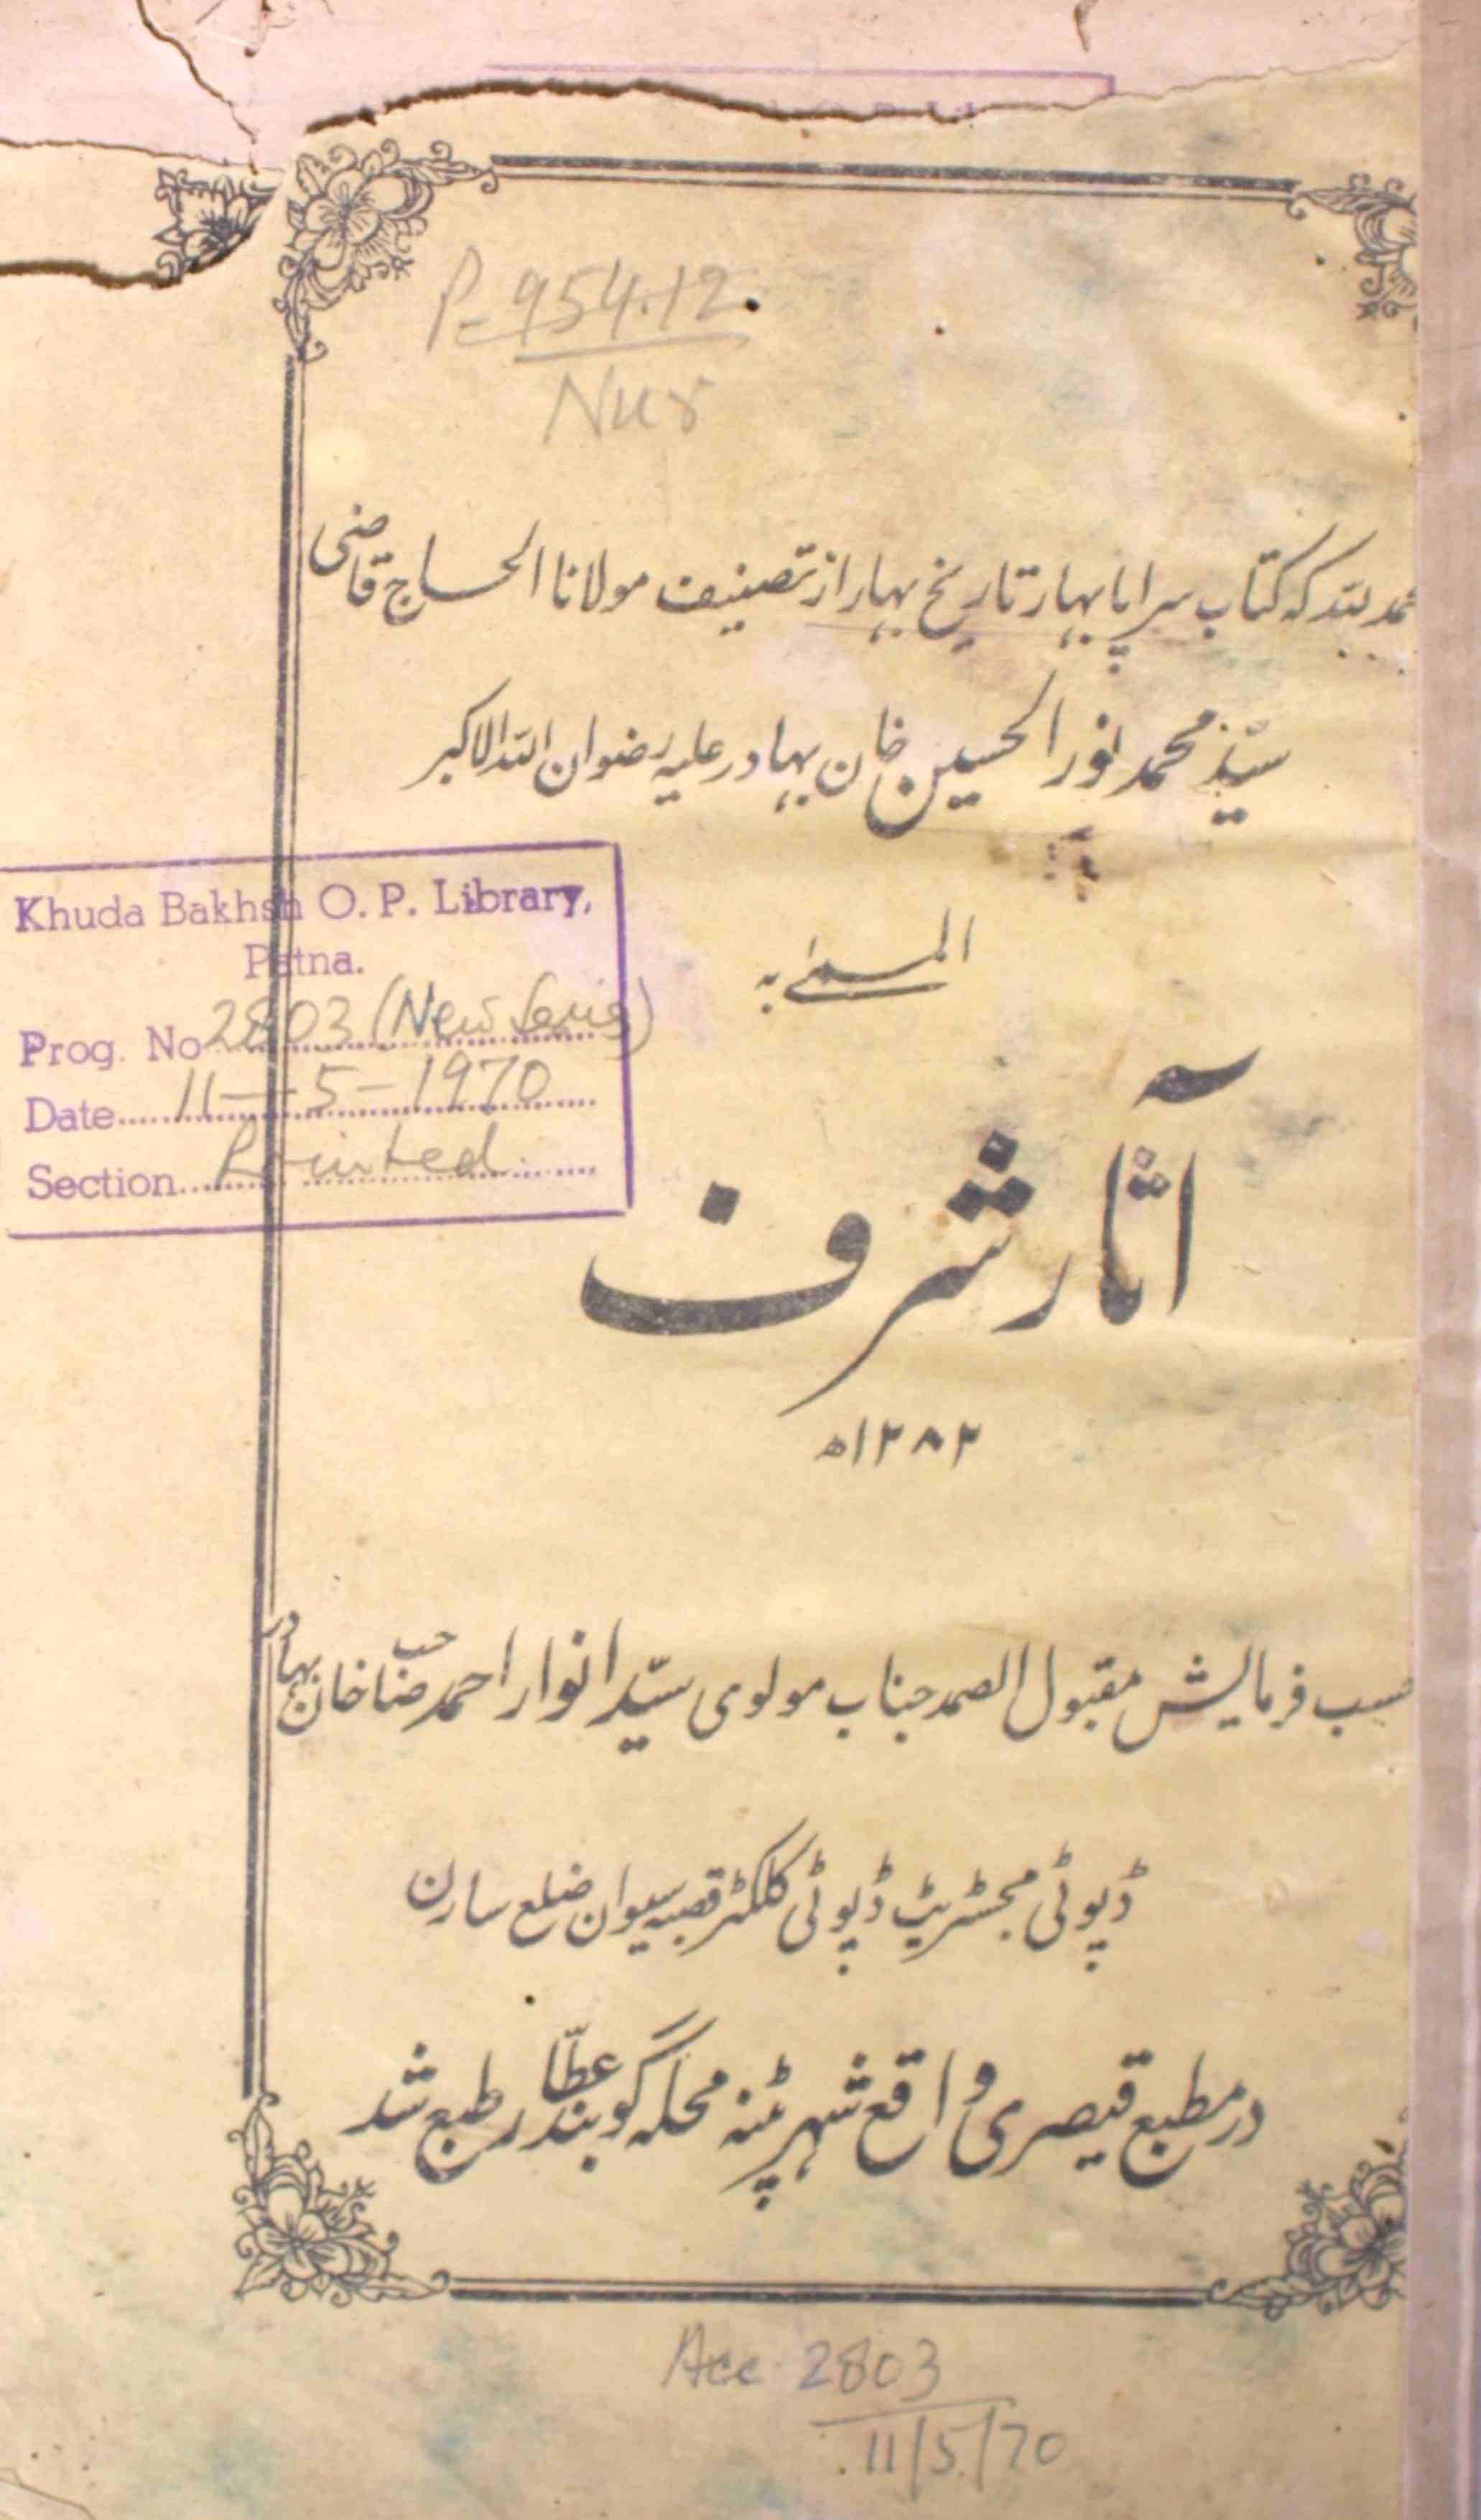 P-954.12
Nur
حمد للہ کہ کتاب سراپا بہار تاریخ بہار از تصنیف مولانا الحاج قاضی
سیّد محمد نور الحسین خان بہادر علیہ رضوان اللہ الاکبر
المسمیٰ بہ
Khuda Bakhsh O. P. Library,
Patna.
Prog. No 2803 (New Series)
Date 11-5-1970
Section Printed
آثار شرف
۱۲۸۲ھ
حسب فرمایش مقبول الصمد جناب مولوی سیّد انوار احمد صاحب خان بہادر
ڈپوٹی مجسٹریٹ ڈپوٹی کلکٹر قصبہ سیوان ضلع سارن
در مطبع قیصری واقع شہر پٹنہ محلہ گوبند عطّار طبع شد
Acc 2803
11/5/70